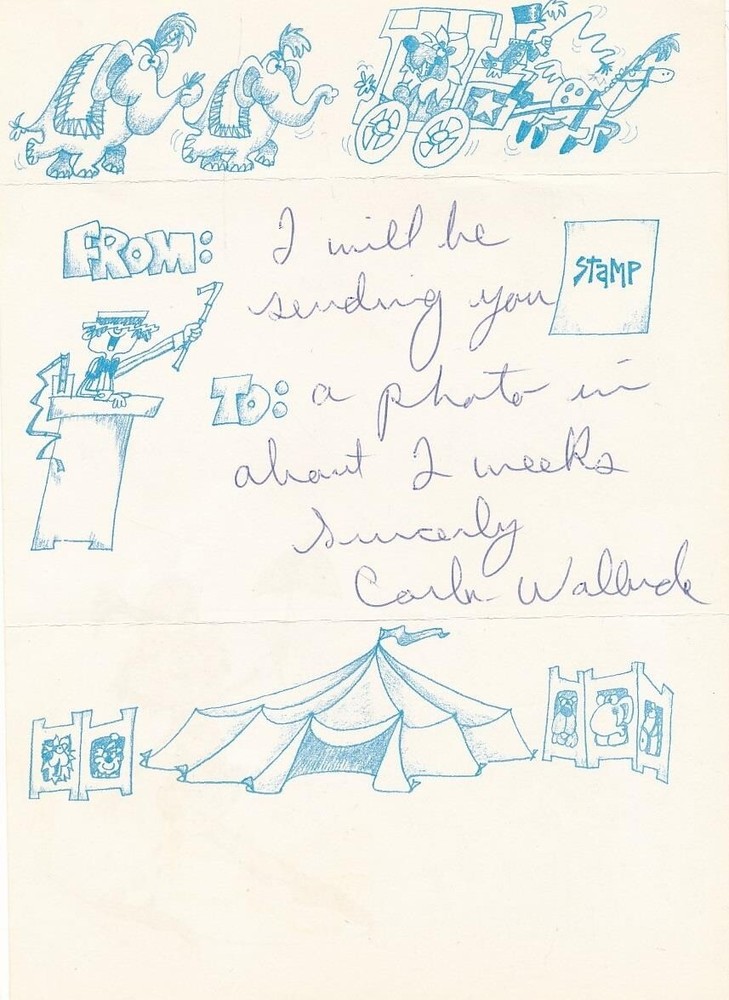 FROM:
I will be
STAMP
sending you
TO:
a photo in
about 2 weeks
Sincerly
Carla Wallenda